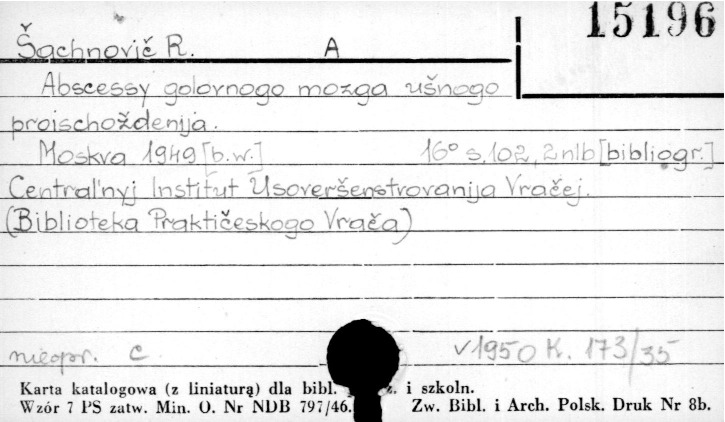 15196
Šachnovič R. A
Abscessy golovnogo mozga ušnogo
proischoždenija.
Moskva 1949 [b.w.] 16° s. 102, 2 nlb [bibliogr.]
Central'nyj Institut Usoveršenstvovanija Vračej.
(Biblioteka Praktičeskogo Vrača)
nieopr. c. v 1950 K. 173/35
Karta katalogowa (z liniaturą) dla bibl. i szkoln.
Wzór 7 PS zatw. Min. O. Nr NDB 797/46. Zw. Bibl. i Arch. Polsk. Druk Nr 8b.